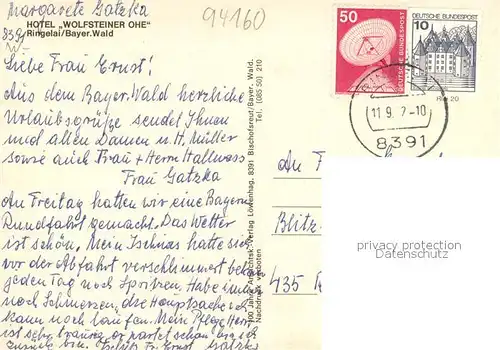 Margarete Gatzka
94160
HOTEL „WOLFSTEINER OHE“
Ringelai/Bayer. Wald
Liebe Frau Ernst!
Aus dem Bayer. Wald herzliche
Urlaubsgrüße sendet Ihnen
und allen Damen u. H. Müller
sowie auch Frau + Herrn Hallwass
Frau Gatzka
Am Freitag hatten wir eine Bayern
Rundfahrt gemacht. Das Wetter
ist schön. Mein Ischias hatte sich
vor der Abfahrt verschlimmert
jeden Tag noch Spritzen. Habe immer
noch Schmerzen, die Hauptsache ich
kann noch laufen. Mein Pflege
ist sehr traurig
zurück bin. Gatzka
Verlag Löwenhag, 8391 Bischofsreut/Bayer. Wald.
Tel. (085 50) 210
Nachdruck verboten
50
DEUTSCHE BUNDESPOST
DEUTSCHE BUNDESPOST
10
8391
An F
Blitz-
435
privacy protection
Datenschutz